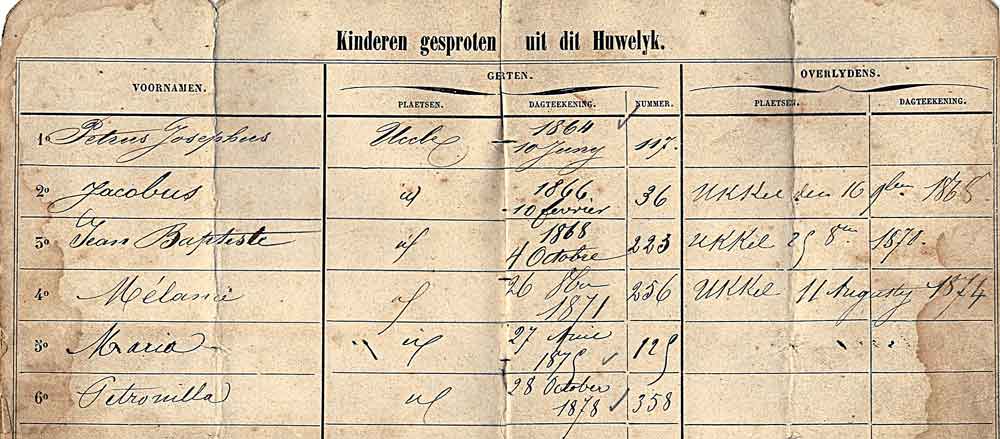 Kinderen gesproten uit dit Huwelyk.
VOORNAMEN. GE TEN. OVERLYDENS.
PLAETSEN. DAGTEEKENING. NUMMER. PLAETSEN. DAGTEEKENING.
1864
1o Petrus Josephus Uccle 10 Juny 117.
2o Jacobus id 1866 36 UKKel den 16
10 fevrier
3o Jean Baptiste id 1868 223 UKKel 25 8ber 1870.
4 Octobre
4o Mélanie id 26 8ber 256 UKKel 11 Augusty 1874
1871
5o Maria id 27 125
1875
6o Petronilla id 28 October 358
1878